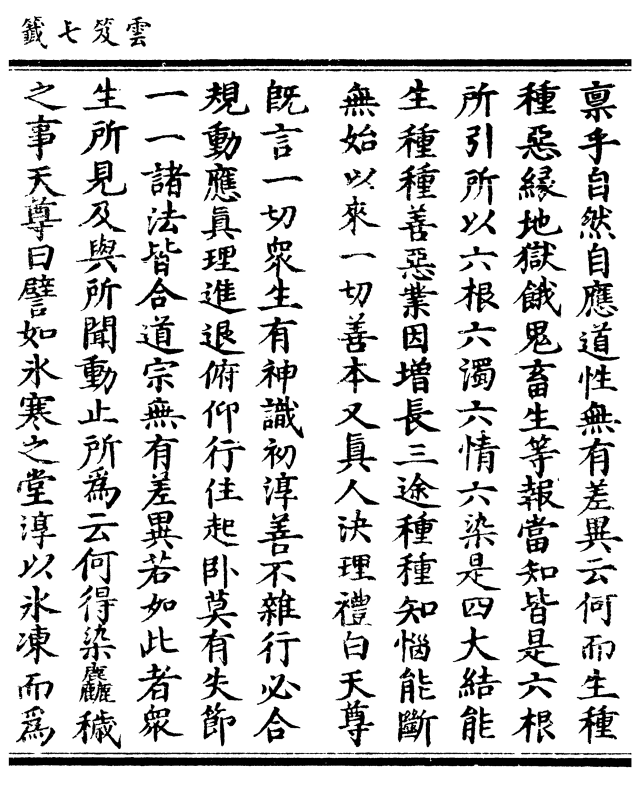 雲笈七籤
禀乎自然自應道性無有差異云何而生種
種惡緣地獄餓鬼畜生等報當知皆是六根
所引所以六根六濁六情六染是四大結能
生種種善惡業因增長三途種種知惱能斷
無始以來一切善本又眞人決理禮白天尊
旣言一切衆生有神識初淳善不雜行必合
規動應眞理進退俯仰行住起卧莫有失節
一一諸法皆合道宗無有差異若如此者衆
生所見及與所聞動止所爲云何得染麤穢
之事天尊曰譬如氷寒之堂淳以氷凍而爲